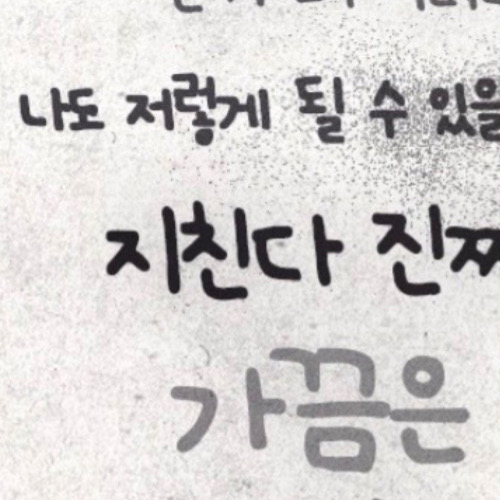 나도 저렇게 될 수 있을
지친다 진짜
가끔은